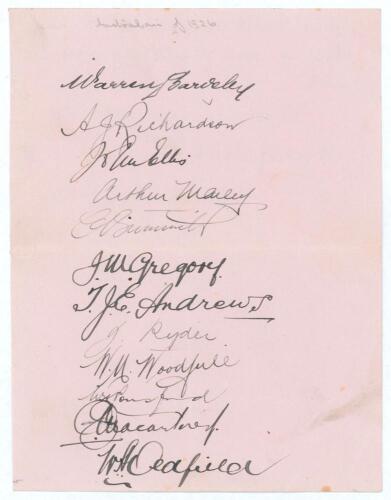 Australian of 1926
Warren Bardsley
A J Richardson
J L Ellis
Arthur Mailey
J. M. Gregory.
T. J. E. Andrews
J Ryder
W. M. Woodfull
W H Ponsford
C G Macartney.
W A Oldfield